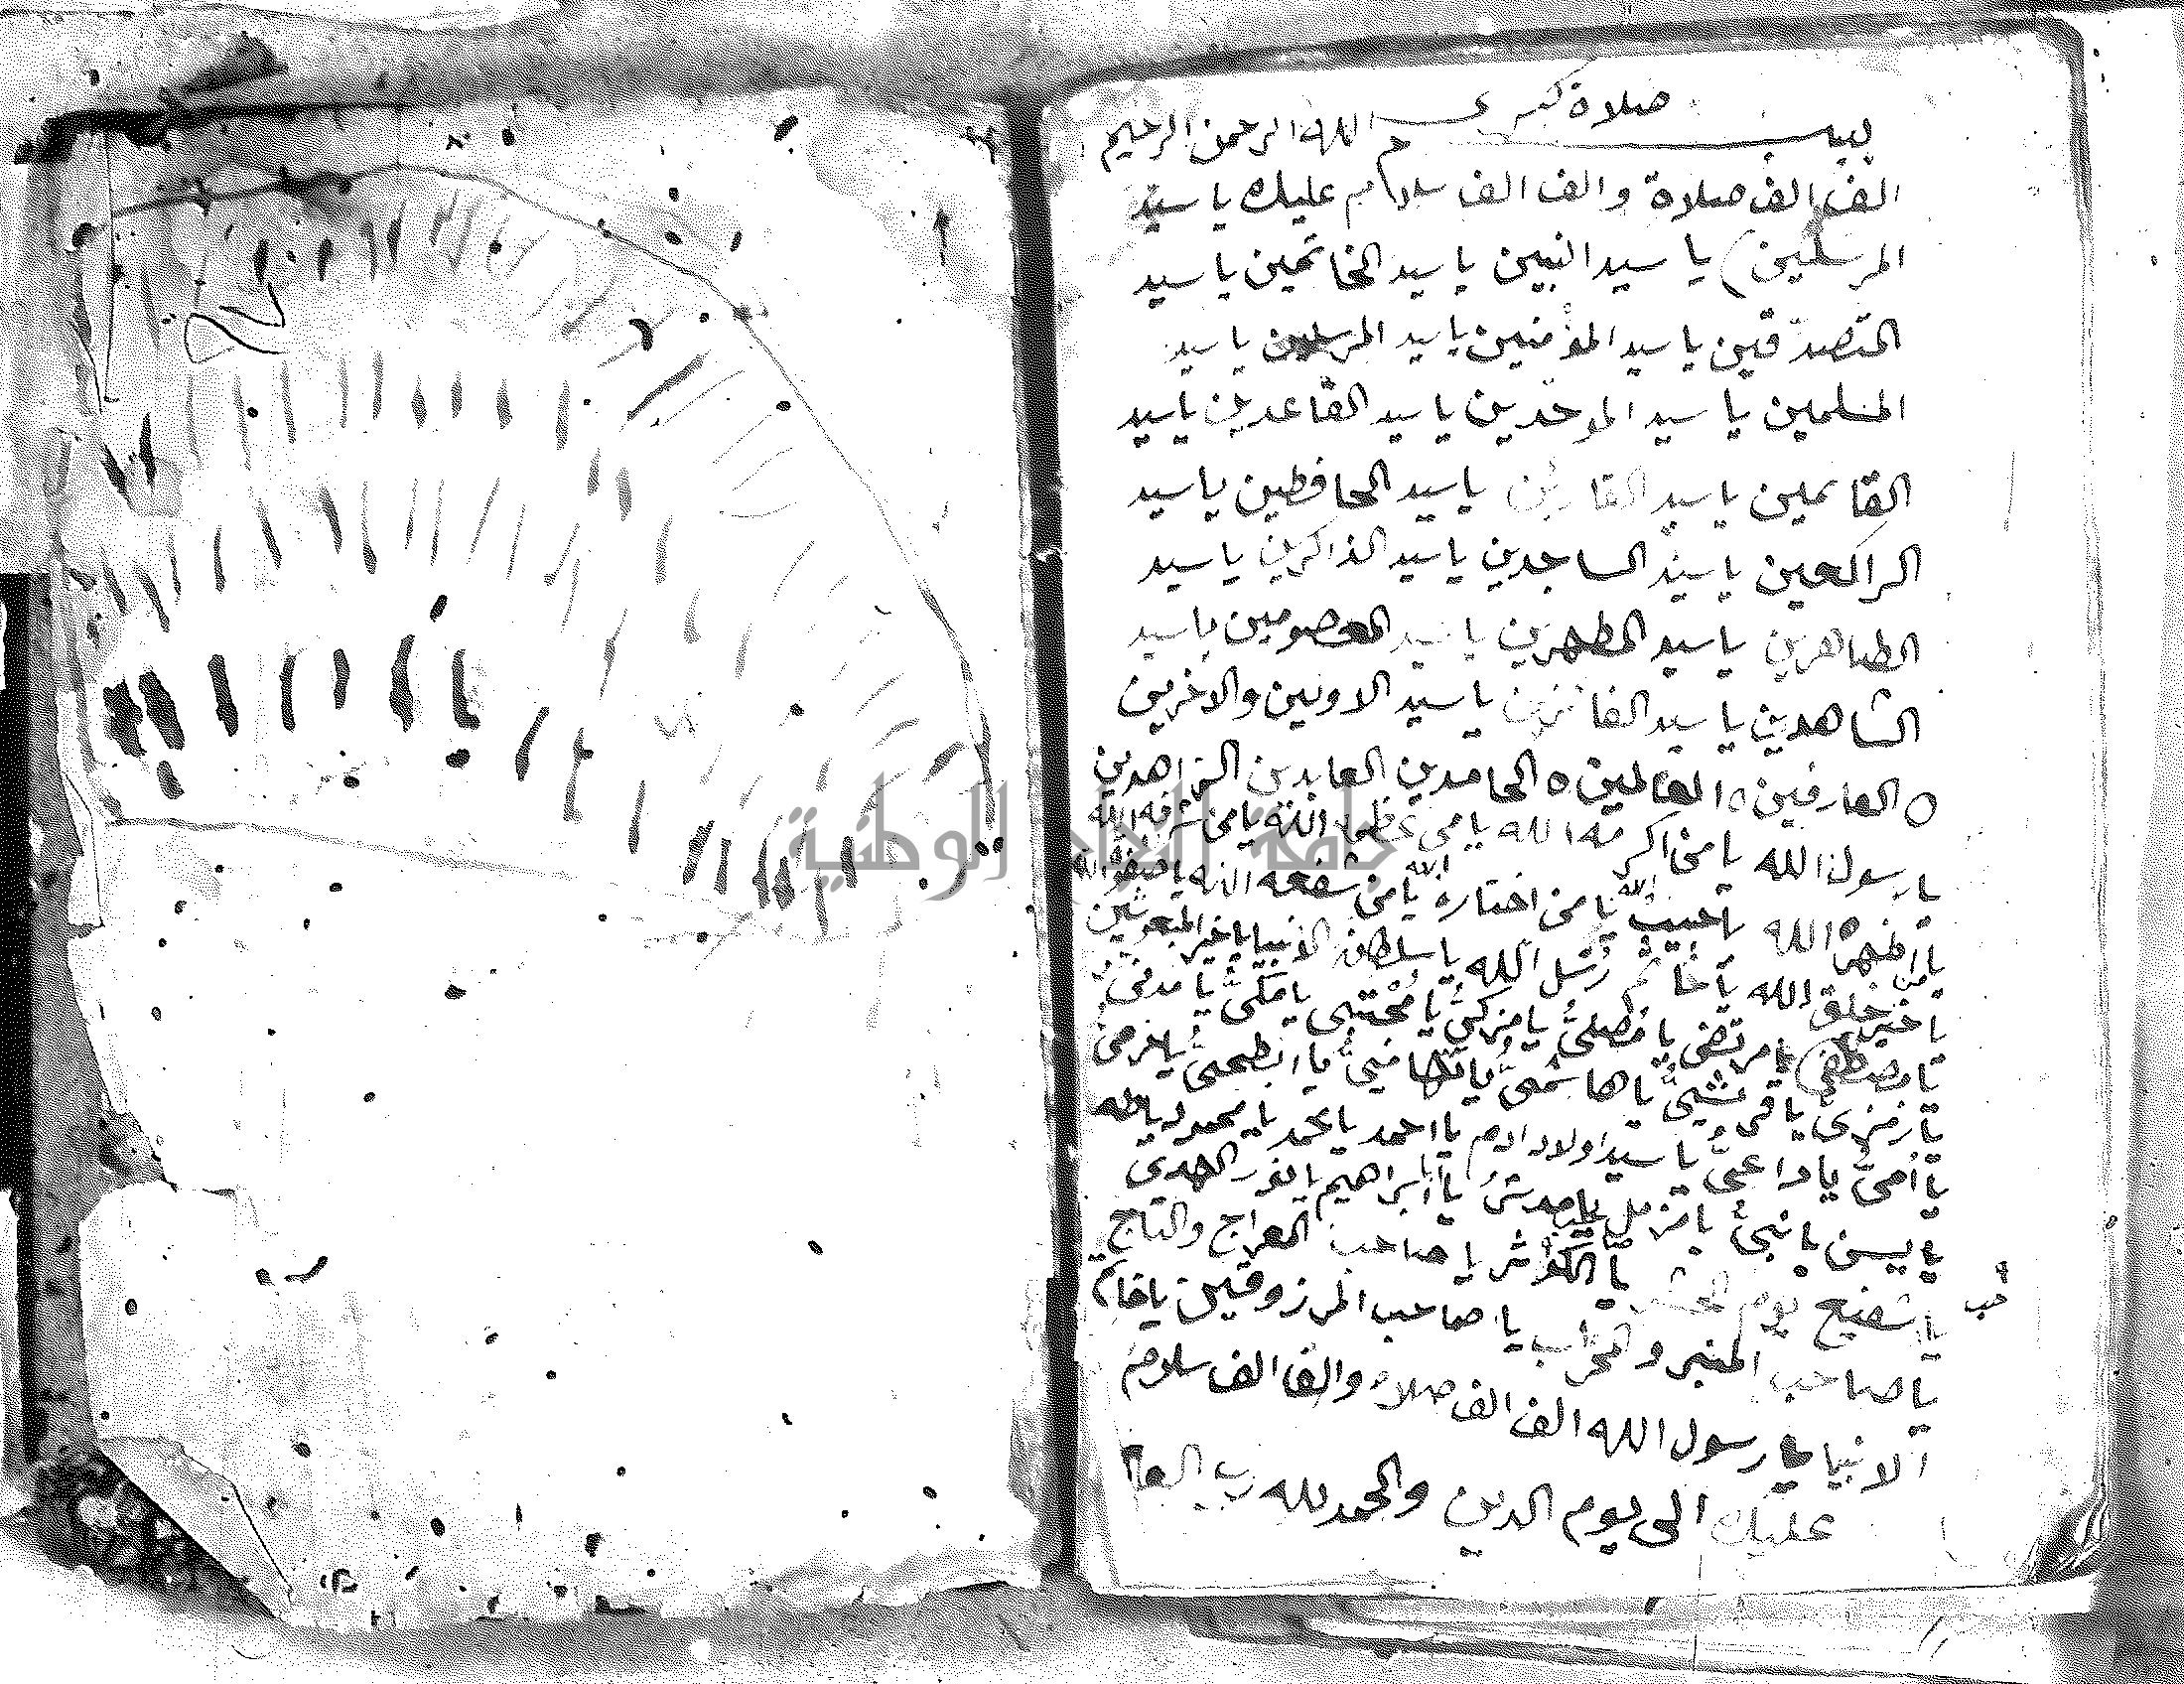 صلاة كبرى
بسم الله الرحمن الرحيم
الف الف صلاة والف الف سلام عليك يا سيد
المرسلين يا سيد النبيين يا سيد الخاتمين يا سيد
المتصدقين يا سيد المؤمنين يا سيد المرسلين يا سيد
المسلمين يا سيد الموحدين يا سيد القاعدين يا سيد
القائمين يا سيد القارئين يا سيد الحافظين يا سيد
الراكعين يا سيد الساجدين يا سيد الذاكرين يا سيد
الطاهرين يا سيد المطهرين يا سيد المعصومين يا سيد
الشاهدين يا سيد الفائزين يا سيد الاولين والاخرين
العارفين العالمين الحامدين العابدين الزاهدين
يا رسول الله يا من اكرمه الله يا من عظمه الله يا من شرفه الله
يا من اظهره الله يا حبيب الله يا من اختاره الله يا من شفعه الله يا صفوة الله
يا خير خلق الله يا خاتم رسل الله يا سلطان الانبيا يا خير المبعوثين
يا مصطفى يا مرتضى يا فضلي يا مزكي يا مجتبى يا مكي يا مدني
يا زمزمي يا قرشي يا هاشمي يا تهامي يا ابطحي يا
يا امي يا داعي يا سيد اولاد ادم يا احمد يا محمد يا محمود يا طه
يا يسن يا نبي يا مزمل يا مدثر يا ابراهيم يا نور الهدى
يا شفيع يوم المحشر يا الكوثر يا صاحب المعراج والتاج
يا صاحب المنبر والمحراب يا صاحب المرزوقين يا خاتم
الانبيا يا رسول الله الف الف صلاة والف الف سلام
عليك الى يوم الدين والحمد لله رب
جامعة النجاح الوطنية